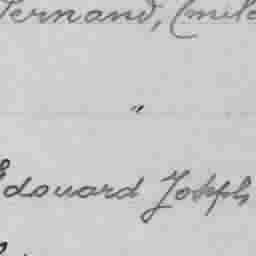 Fernand, Emile
"
Edouard Joseph